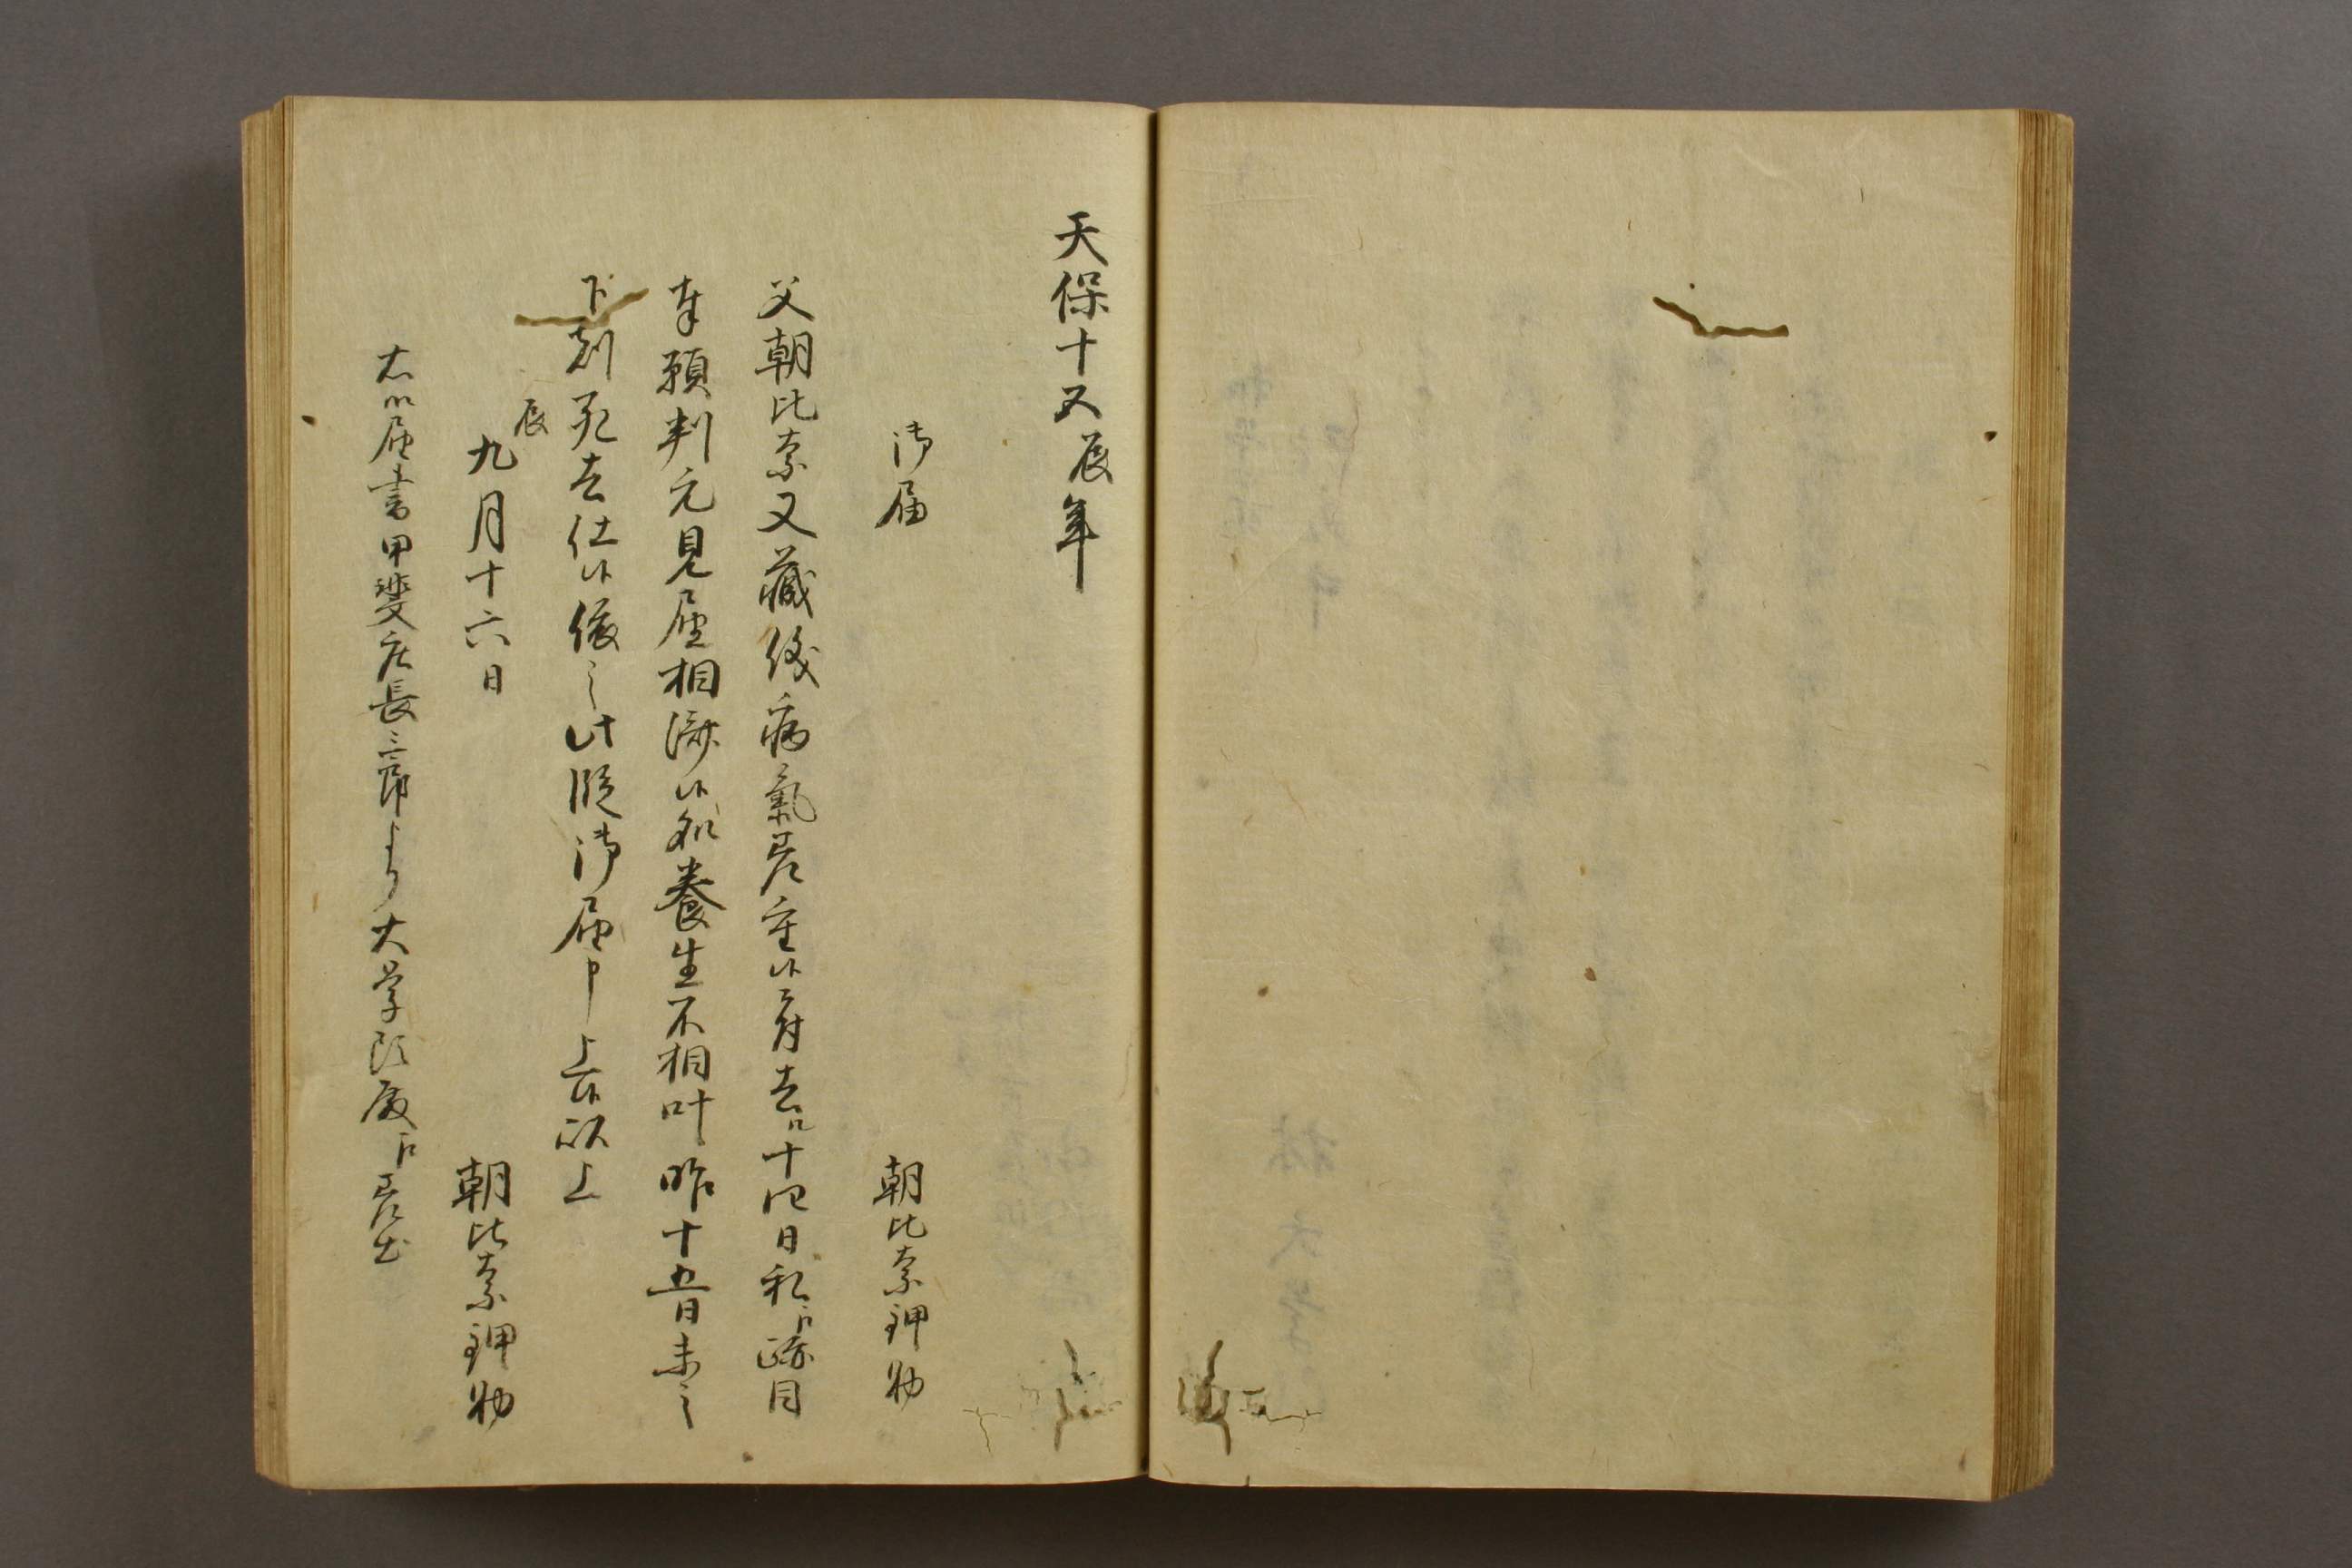 天保十五辰年
御届
朝比奈鉀助
父朝比奈又蔵儀病氣差重候ニ付去ル十四日私江跡目
奉願判元見届相済候処養生不相叶昨十五日未之
下刻死去仕候依之此段御届申上候以上
辰
九月十六日
朝比奈鉀助
右之届書甲斐庄長三郎より大学頭殿江差出